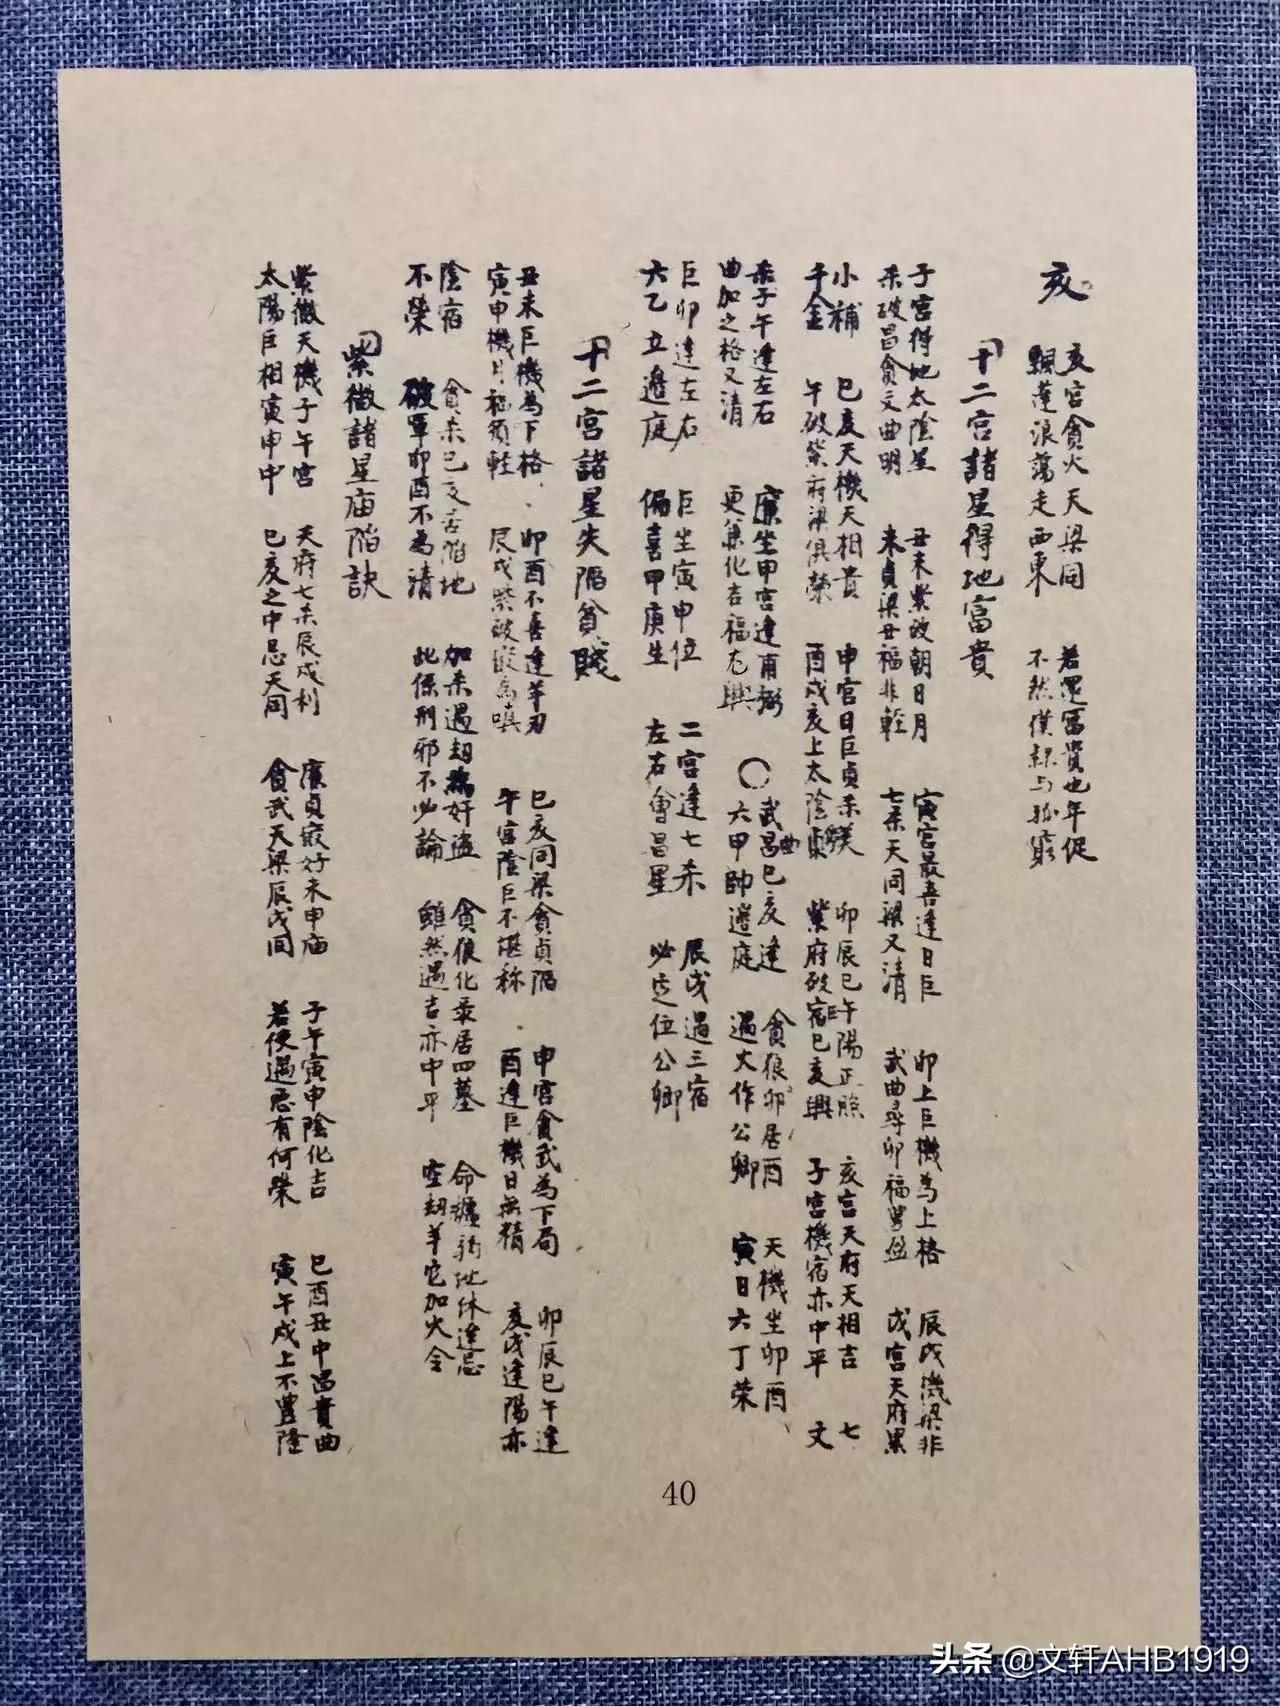 亥
亥宮貪火天梁同 若還富貴也年促
飄蓬浪蕩走西東 不然僕隸与孤窮
十二宮諸星得地富貴
子宮得地太陰星 丑未紫破朝日月 寅宮最喜逢日巨 卯上巨機為上格 辰戌機梁非
杀破昌貪文曲明 未貞梁丑福非輕 七杀天同梁又清 武曲尋卯福豐盈 戌宮天府累
小補 巳亥天機天相貴 申宮日巨貞杀美 卯辰巳午陽正照 亥宮天府天相吉 七
千金 午破紫府梁俱榮 酉戌亥上太陰 紫府破宿巳亥興 子宮機宿亦中平 文
杀子午逢左右 廉坐申宮逢甫弼 ○武昌曲巳亥逢 貪狼卯居酉 天機坐卯酉
曲加之格又清 更兼化吉福尤興 六甲帥邊庭 遇火作公卿 寅日六丁荣
巨卯逢左右 巨坐寅申位 二宮逢七杀 辰戌遇三宿
六乙立邊庭 偏喜甲庚生 左右會昌星 必定位公卿
十二宮諸星失陷貧賤
丑未巨機為下格 卯酉不喜逢羊刃 巳亥同梁貪貞陷 申宮貪武為下局 卯辰巳午逢
寅申機月福須輕 辰戌紫破最為嗔 午宮陰巨不堪称 酉逢巨機日無精 亥戌逢陽亦
陰宿 貪杀巳亥居陷地 加杀遇劫為奸盗 貪狼化杀居四墓 命纏弱地休逢忌
不榮 破軍卯酉不為清 此係刑邪不必論 雖然遇吉亦中平 空劫羊它加火令
紫微諸星庙陷訣
紫微天機子午宮 天府七杀辰戌利 廉貞最好未申庙 子午寅申陰化吉 巳酉丑中昌貴曲
太陽巨相寅申中 巳亥之中忌天同 貪武天梁辰戌同 若使遇忌有何榮 寅午戌上不豐隆
40
头条 @文轩AHB1919